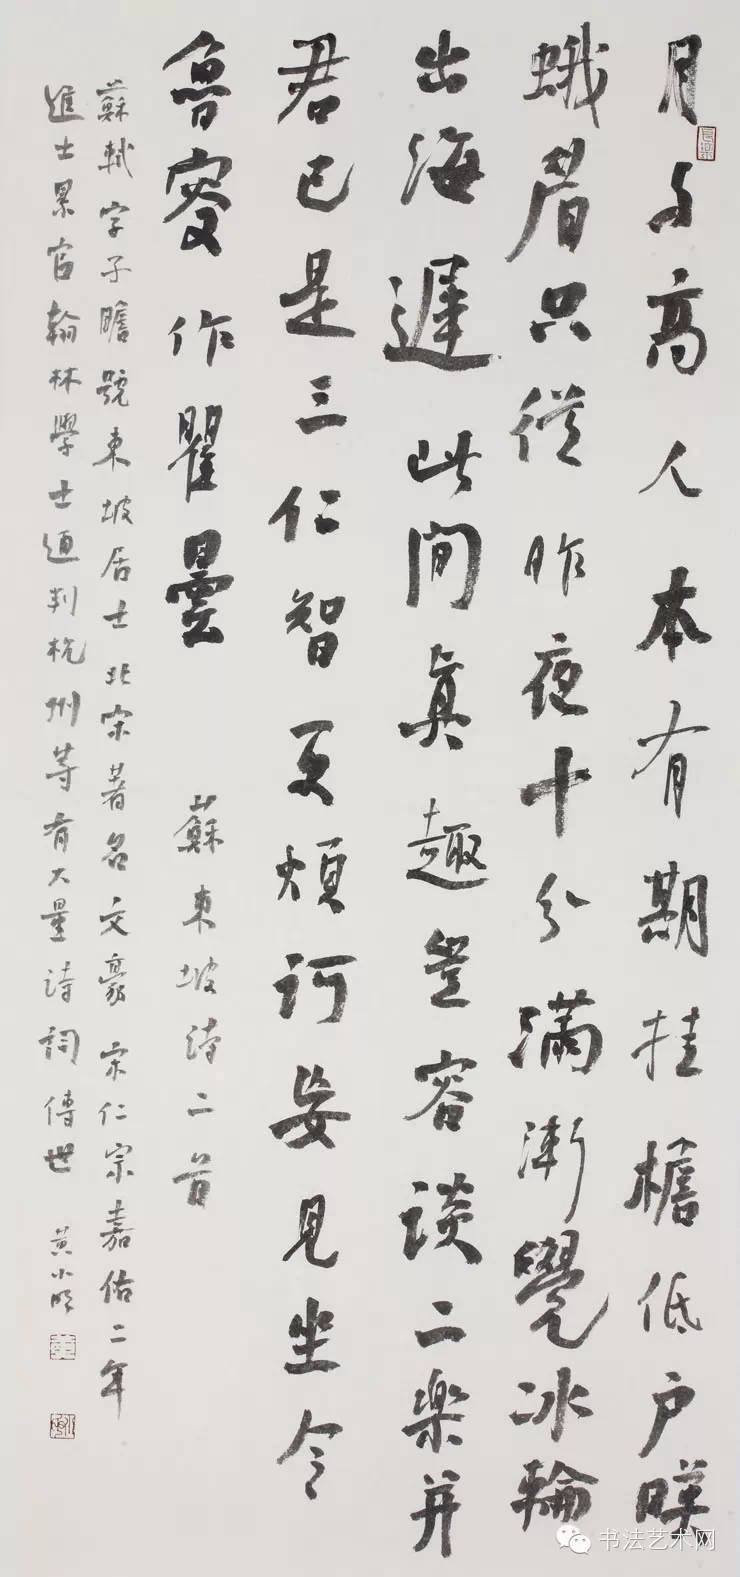 月与高人本有期挂檐低户暎
蛾眉只從昨夜十分滿漸覺冰輪
出海遲此間眞趣豈容談二楽并
君已是三仁智更煩訶妄見坐令
魯叟作瞿曇 蘇東坡詩二首
蘇軾字子瞻號東坡居士北宋著名文豪宋仁宗嘉佑二年
進士累官翰林學士通判杭州等有大量詩詞傳世 黄小明
书法艺术网